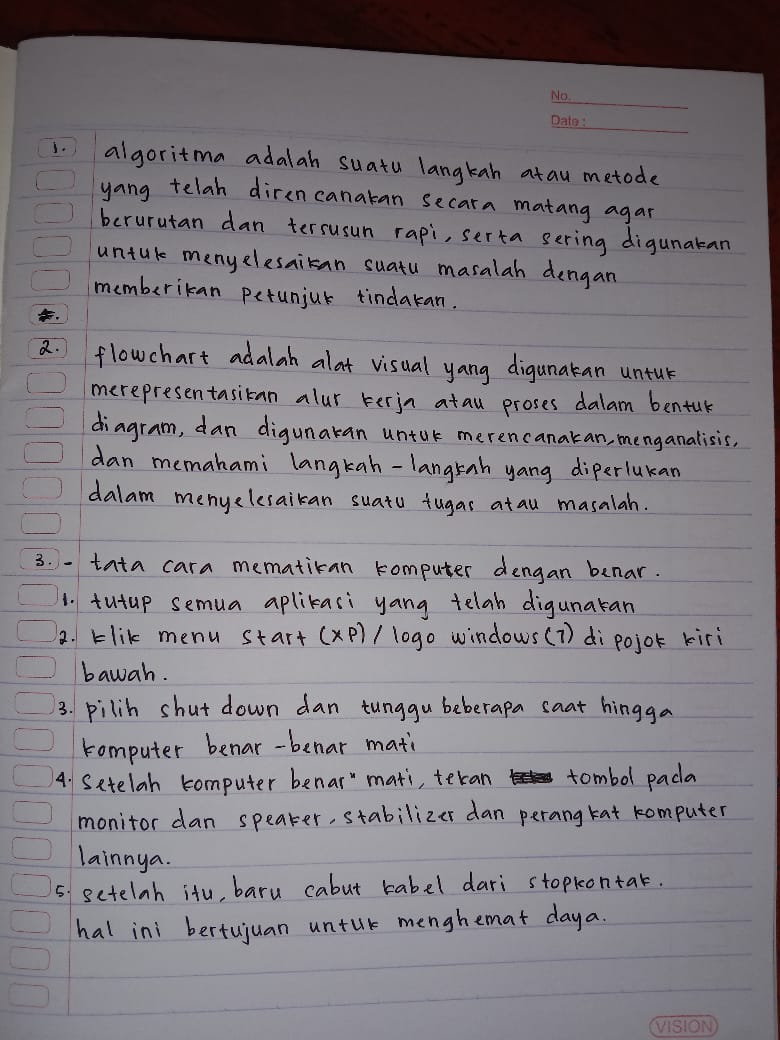 No.
Date:
1. algoritma adalah suatu langkah atau metode
yang telah direncanakan secara matang agar
berurutan dan tersusun rapi, serta sering digunakan
untuk menyelesaikan suatu masalah dengan
memberikan petunjuk tindakan.
2. flowchart adalah alat visual yang digunakan untuk
merepresentasikan alur kerja atau proses dalam bentuk
diagram, dan digunakan untuk merencanakan, menganalisis,
dan memahami langkah-langkah yang diperlukan
dalam menyelesaikan suatu tugas atau masalah.
3. - tata cara mematikan komputer dengan benar.
1. tutup semua aplikasi yang telah digunakan
2. klik menu start (XP) / logo windows (7) di pojok kiri
bawah.
3. pilih shut down dan tunggu beberapa saat hingga
komputer benar-benar mati
4. setelah komputer benar" mati, tekan tombol pada
monitor dan speaker, stabilizer dan perangkat komputer
lainnya.
5. setelah itu, baru cabut kabel dari stopkontak.
hal ini bertujuan untuk menghemat daya.
VISION